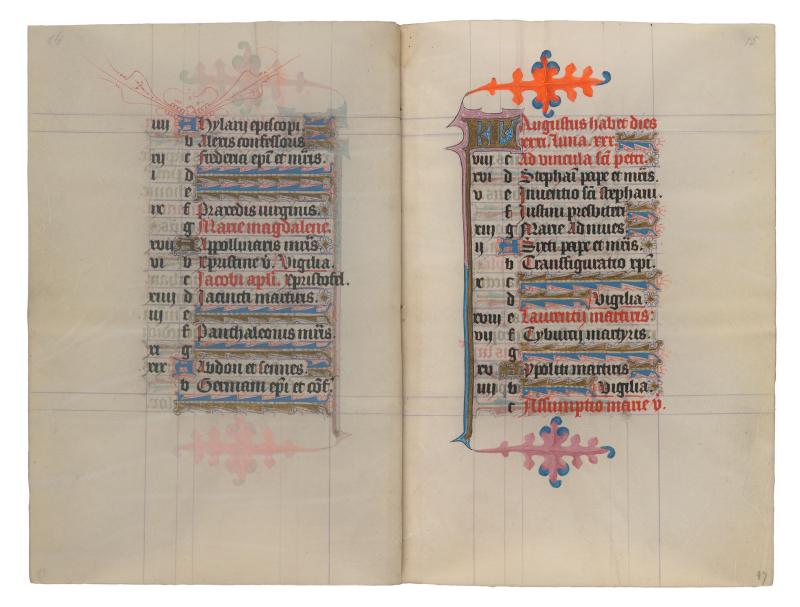 iiii A Hylarij episcopi
b Alexis confessoris
xij c Frederici epi et mris.
i d
e
ix f Praxedis uirginis.
g Marie magdalene.
xvij A Appollinaris mris.
vi b Cpristine v. Vigilia.
c Jacobi apli. Cpristofel.
xiiij d Jacincti martiris.
iij e
f Panthaleonis mris.
xi g
xix A Abdon et sennes.
b Germani epi et cof.
15
KL Augustus habet dies
xxxi. luna. xxx.
viij c Ad vincula sci petri.
xvi d Stephani pape et mris.
v e Inuentio sci stephani.
f Justini presbiteri
xiij g Marie Ad niues
ij A Sixti pape et mris.
b Transfiguratio xpi.
x c
d Vigilia.
xviij e Laurentij martiris.
vij f Tyburtij martyris.
g
xv A Ypoliti martiris
iiij b Vigilia.
c Assumptio marie v.
17